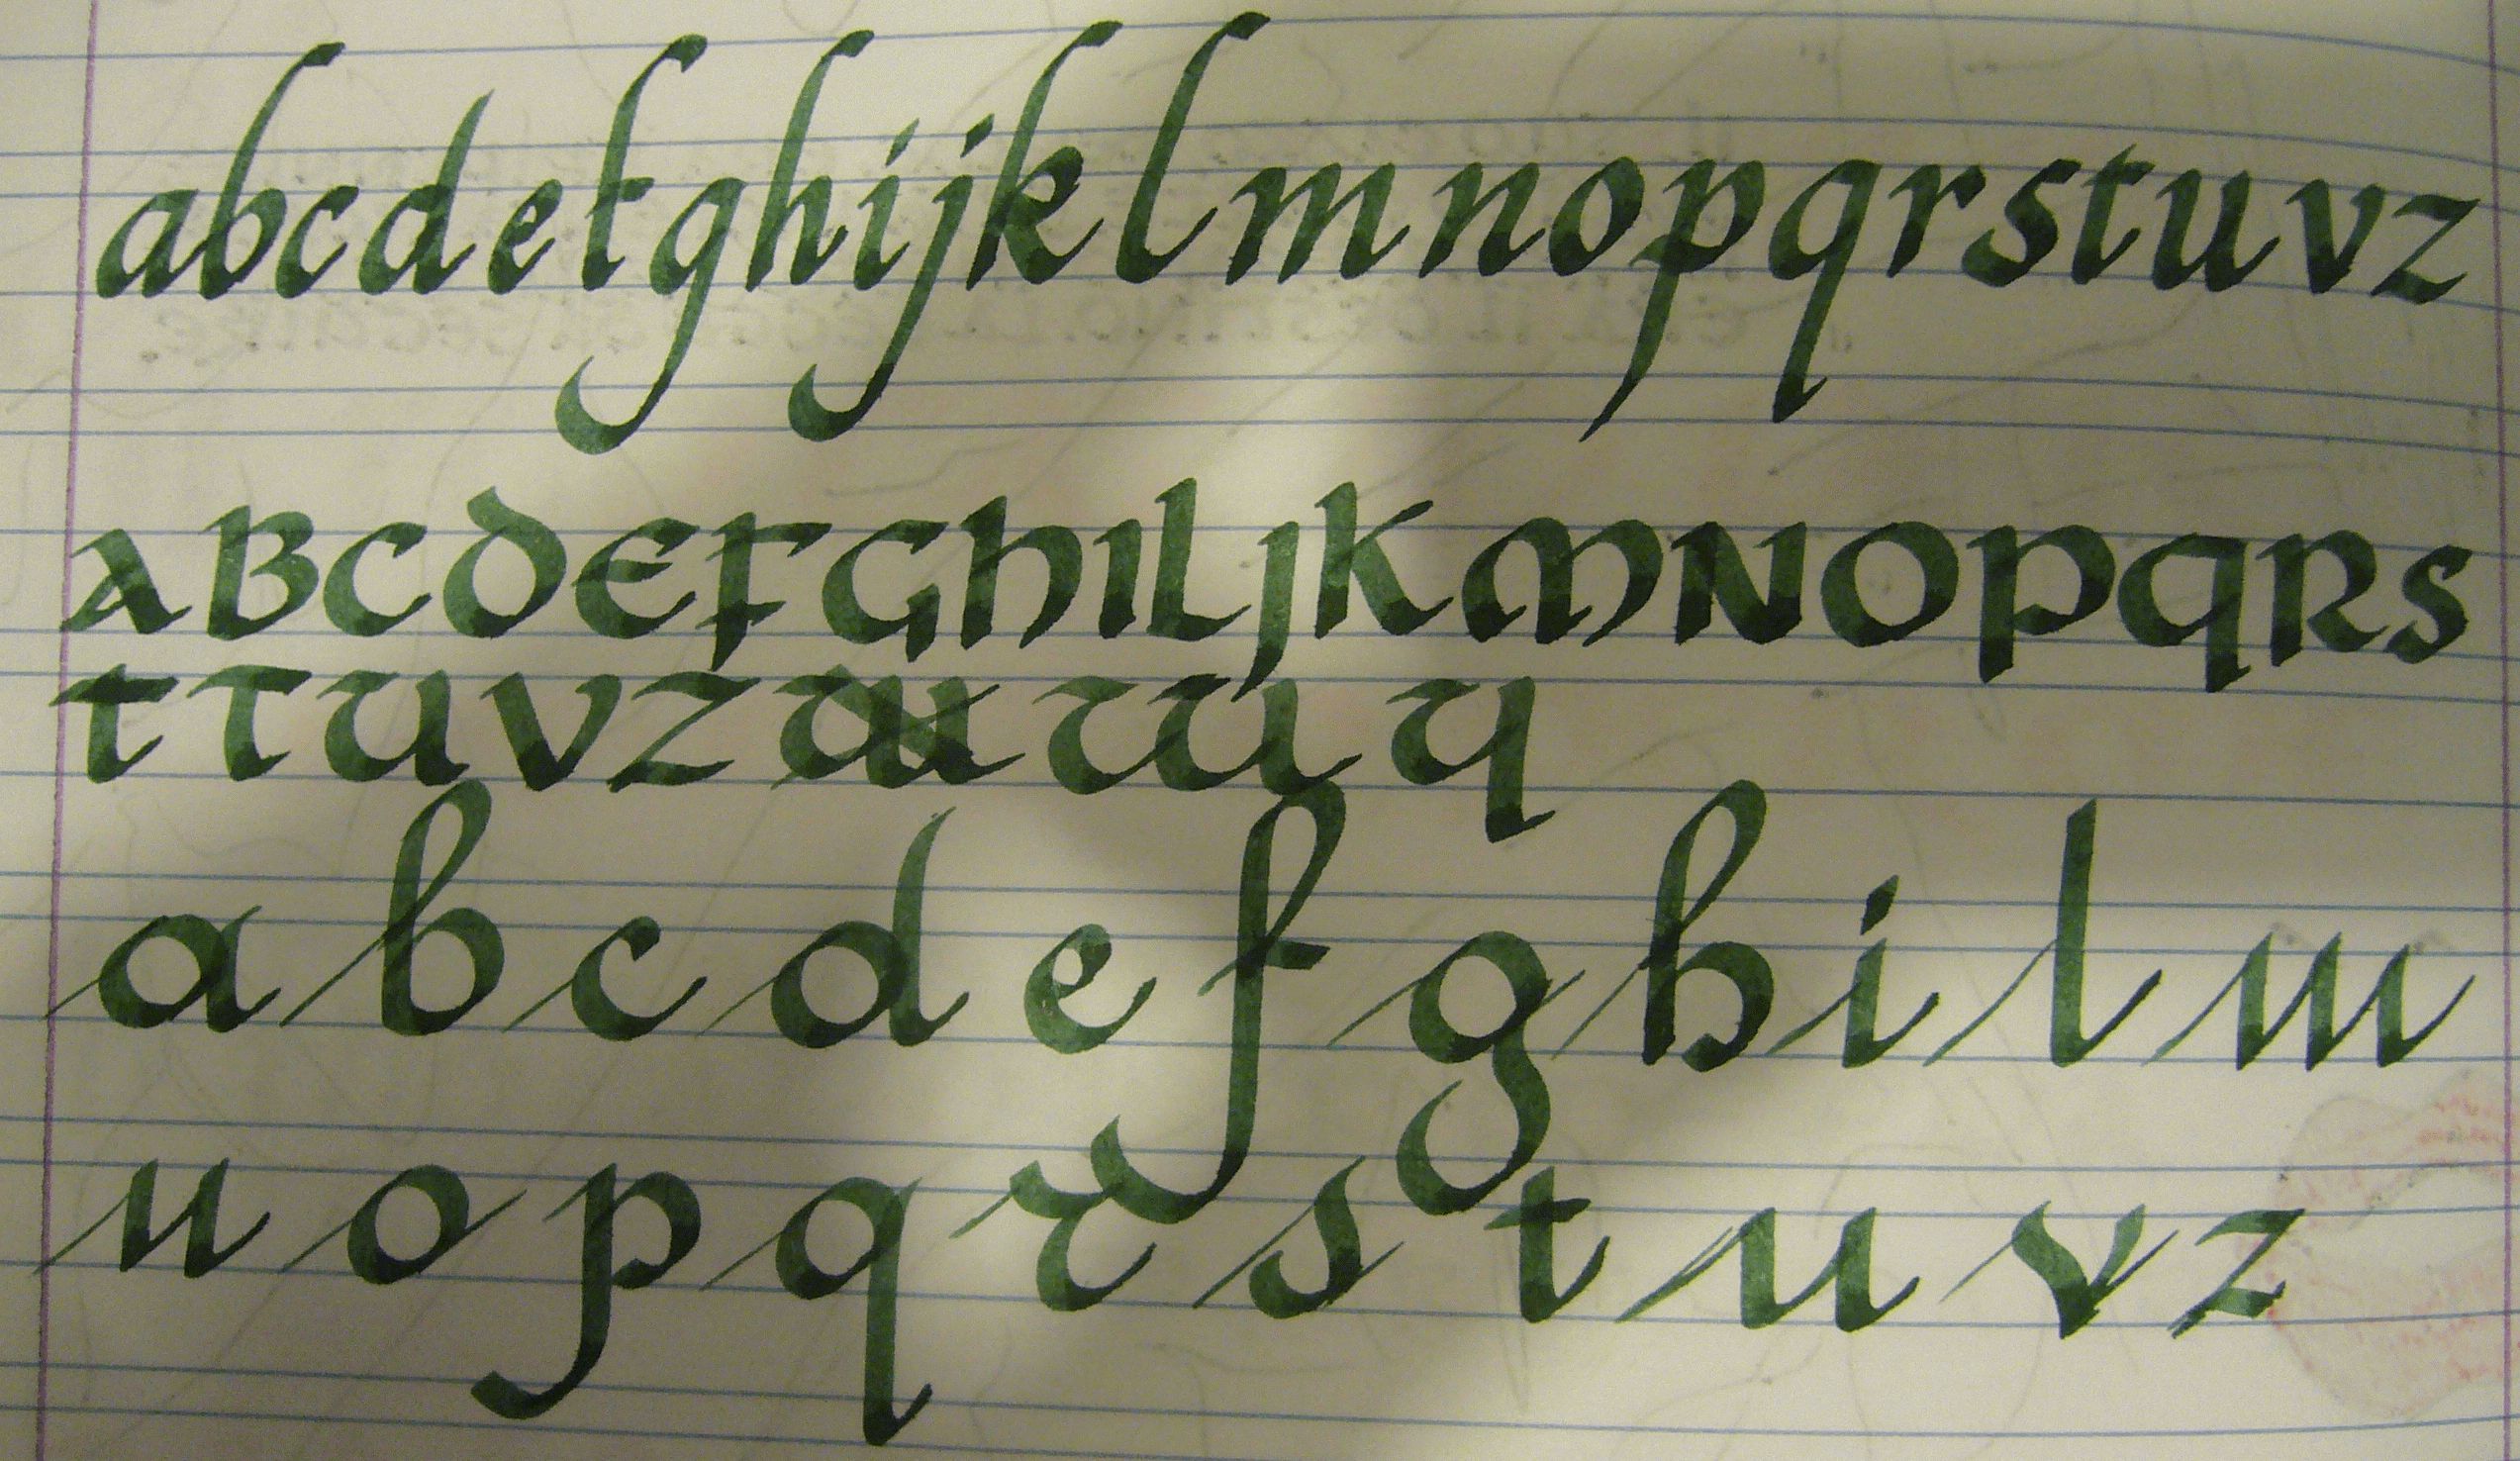 abcdefghijklmnopqrstuvz
ABCDEFGHILJKMNOPQRS
TTUVZ q
abcdefghilm
nopqrstuvz